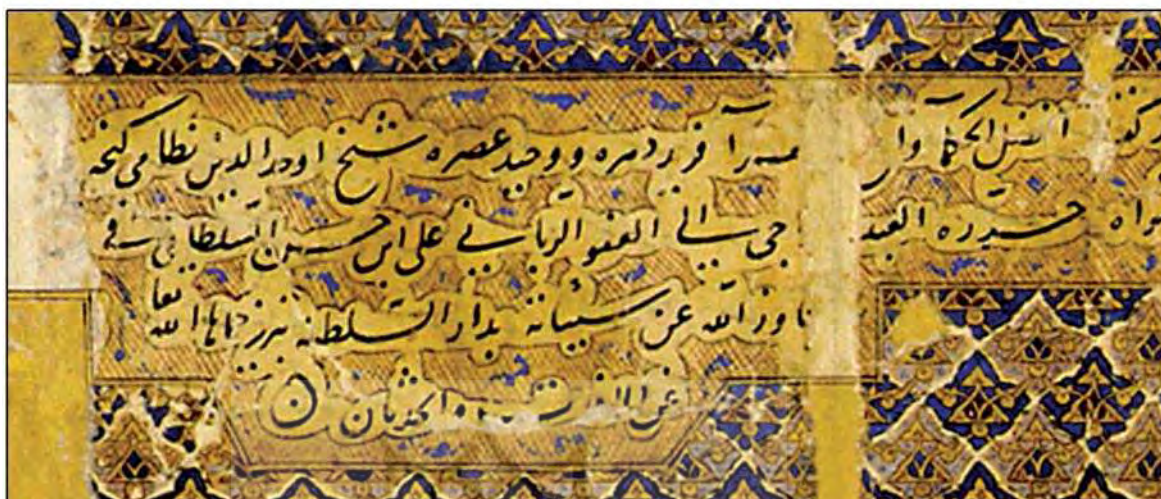 افضل الحكما و فرید دهره و وحید عصره شیخ اوحد الدین نظامی کنجه
حرره العبد جی الی العفو الربانی علی ابن حسین السلطانی فی
اوز الله عن سیئاته بدار السلطنه تبریز حماها الله تعا
عن الافات والحدثان